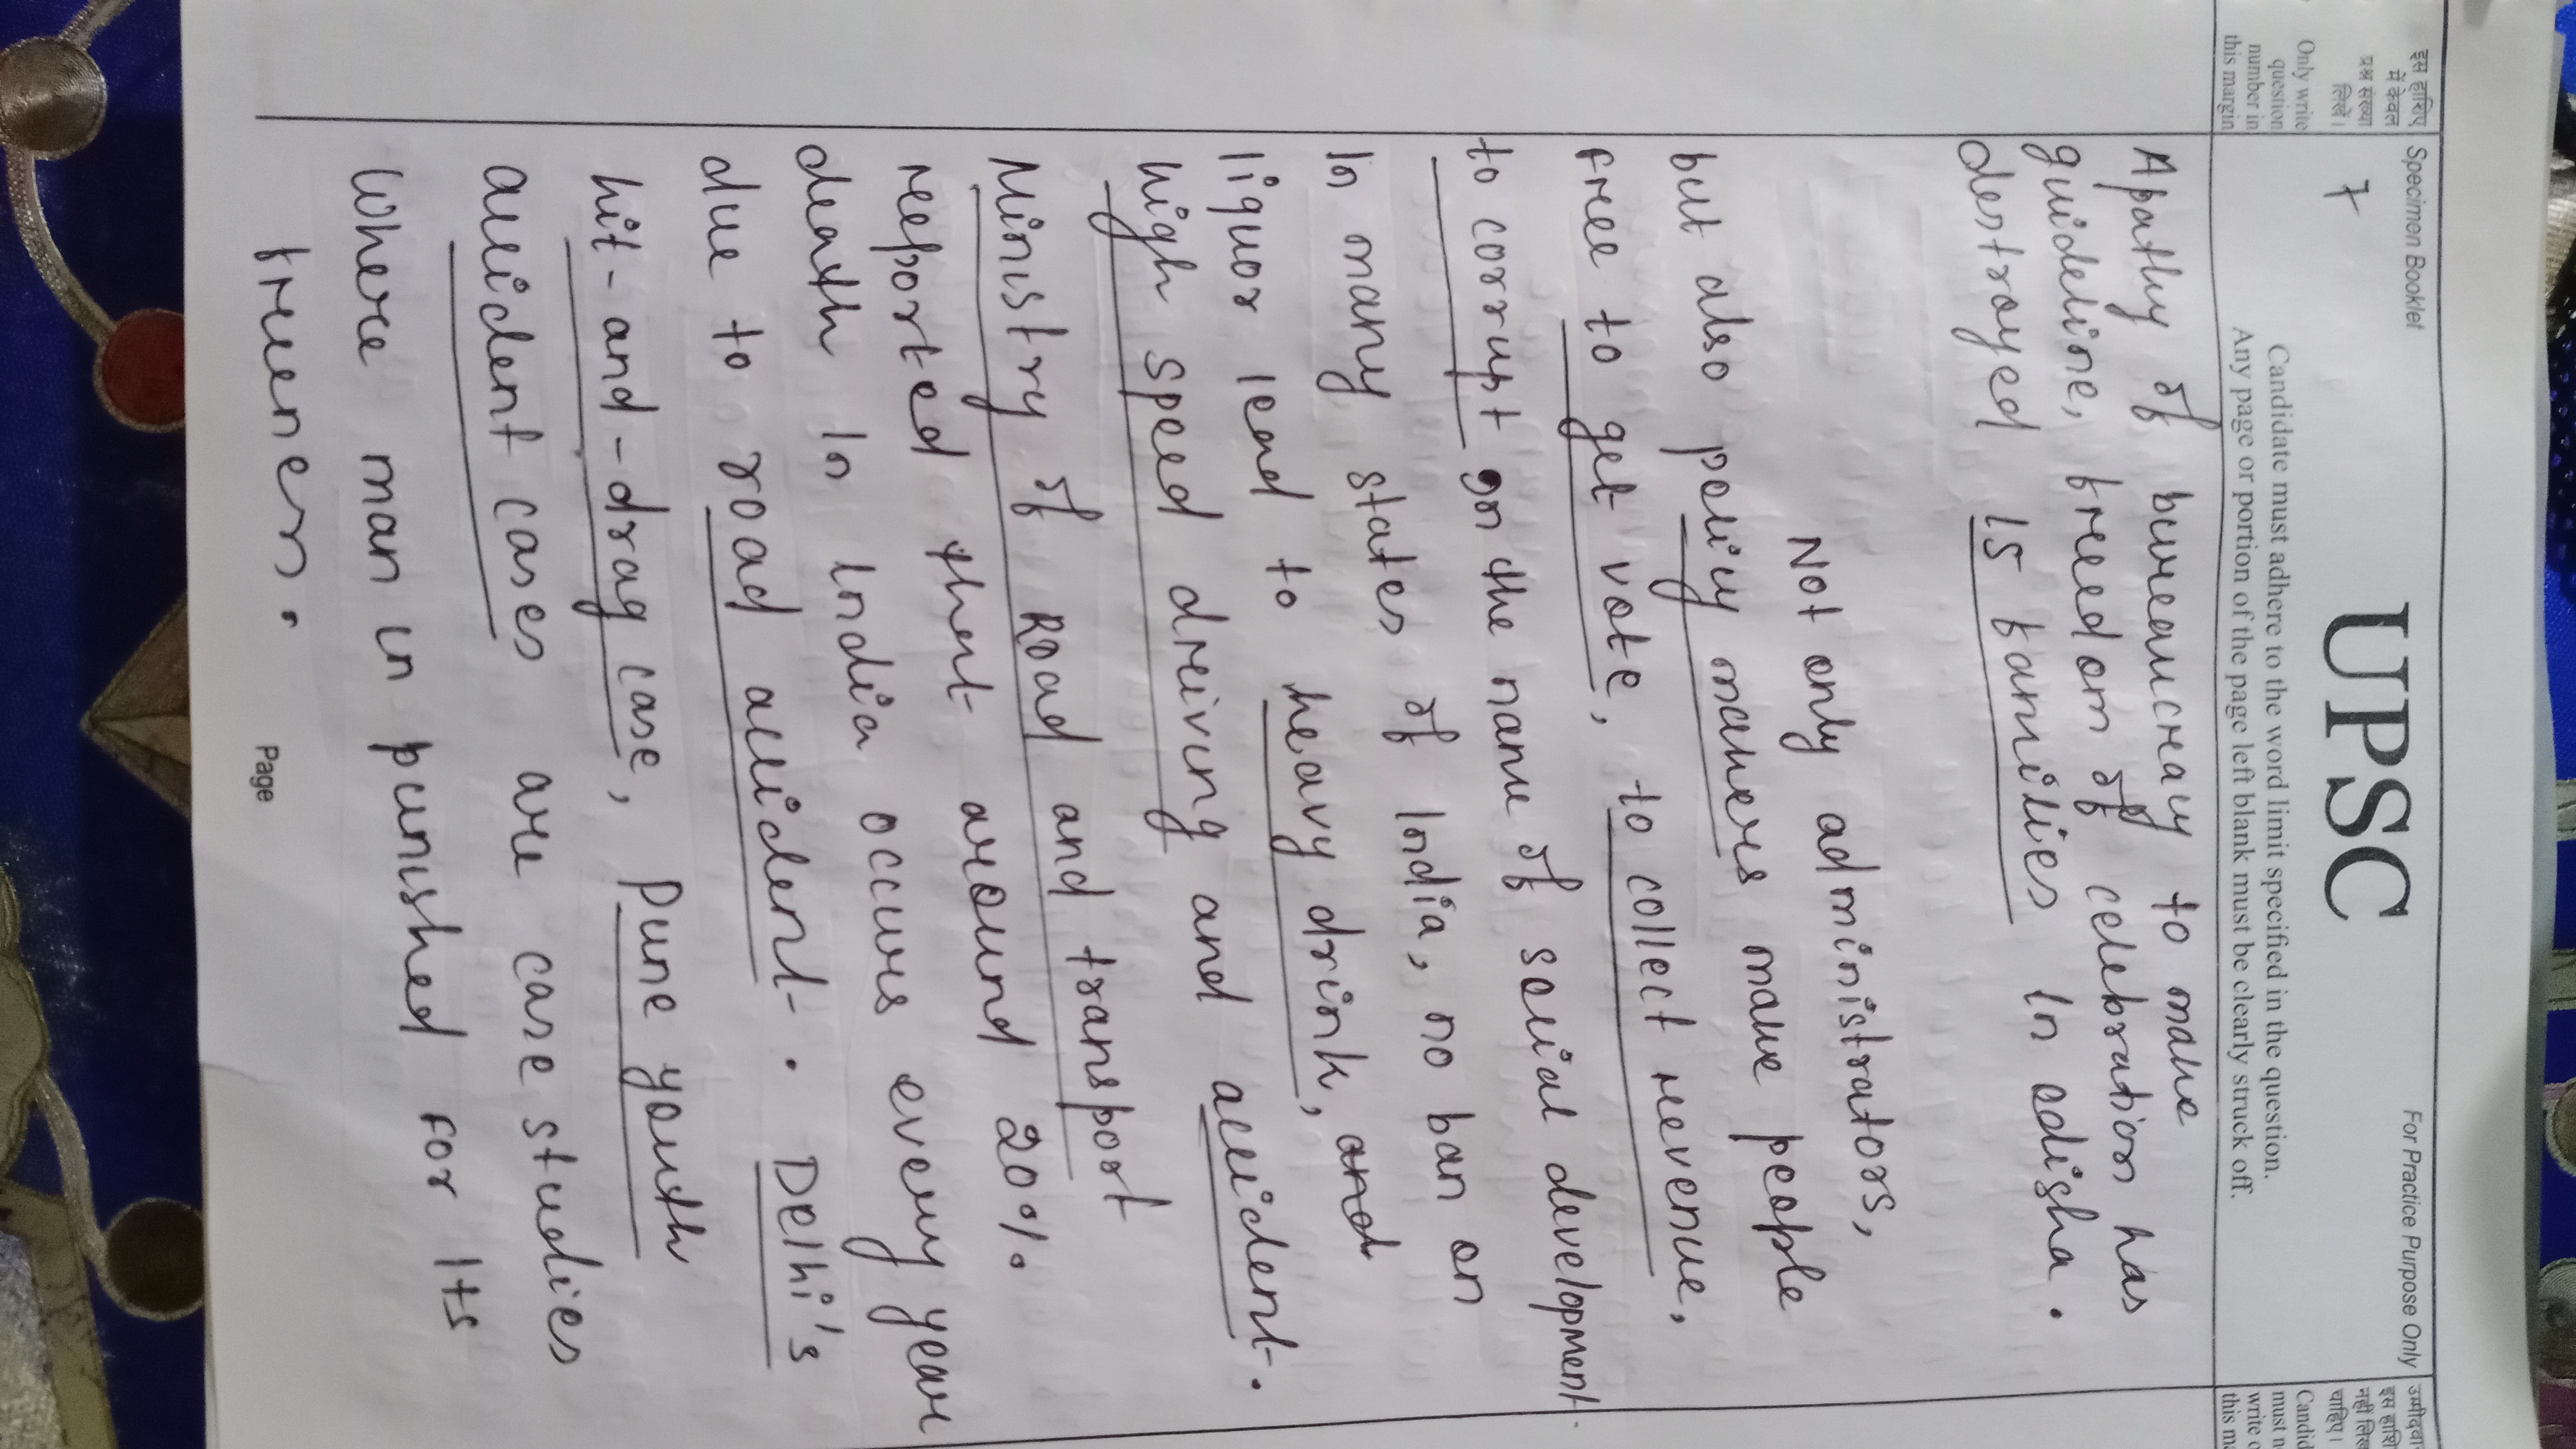 इस हाशिए
में केवल
प्रश्न संख्या
लिखें।
Only write
question
number in
this margin
Specimen Booklet
For Practice Purpose Only
7
UPSC
Candidate must adhere to the word limit specified in the question.
Any page or portion of the page left blank must be clearly struck off.
उम्मीदवा
इस हाशि
नहीं लिख
चाहिए।
Candid
must n
write o
this ma
Apathy of bureaucracy to make
guideline, freedom of celebration has
destroyed 15 families in odisha.
Not only administrators,
but also policy makers make people
free to get vote, to collect revenue,
to corrupt on the name of social development.
In many states of India, no ban on
liquor lead to heavy drink, and
high speed driving and accident.
Ministry of Road and transport
reported that around 20%
death in India occurs every year
due to road accident. Delhi's
hit-and-drag case, Pune youth
accident cases are case studies
where man is punished for its
freeness.
Page